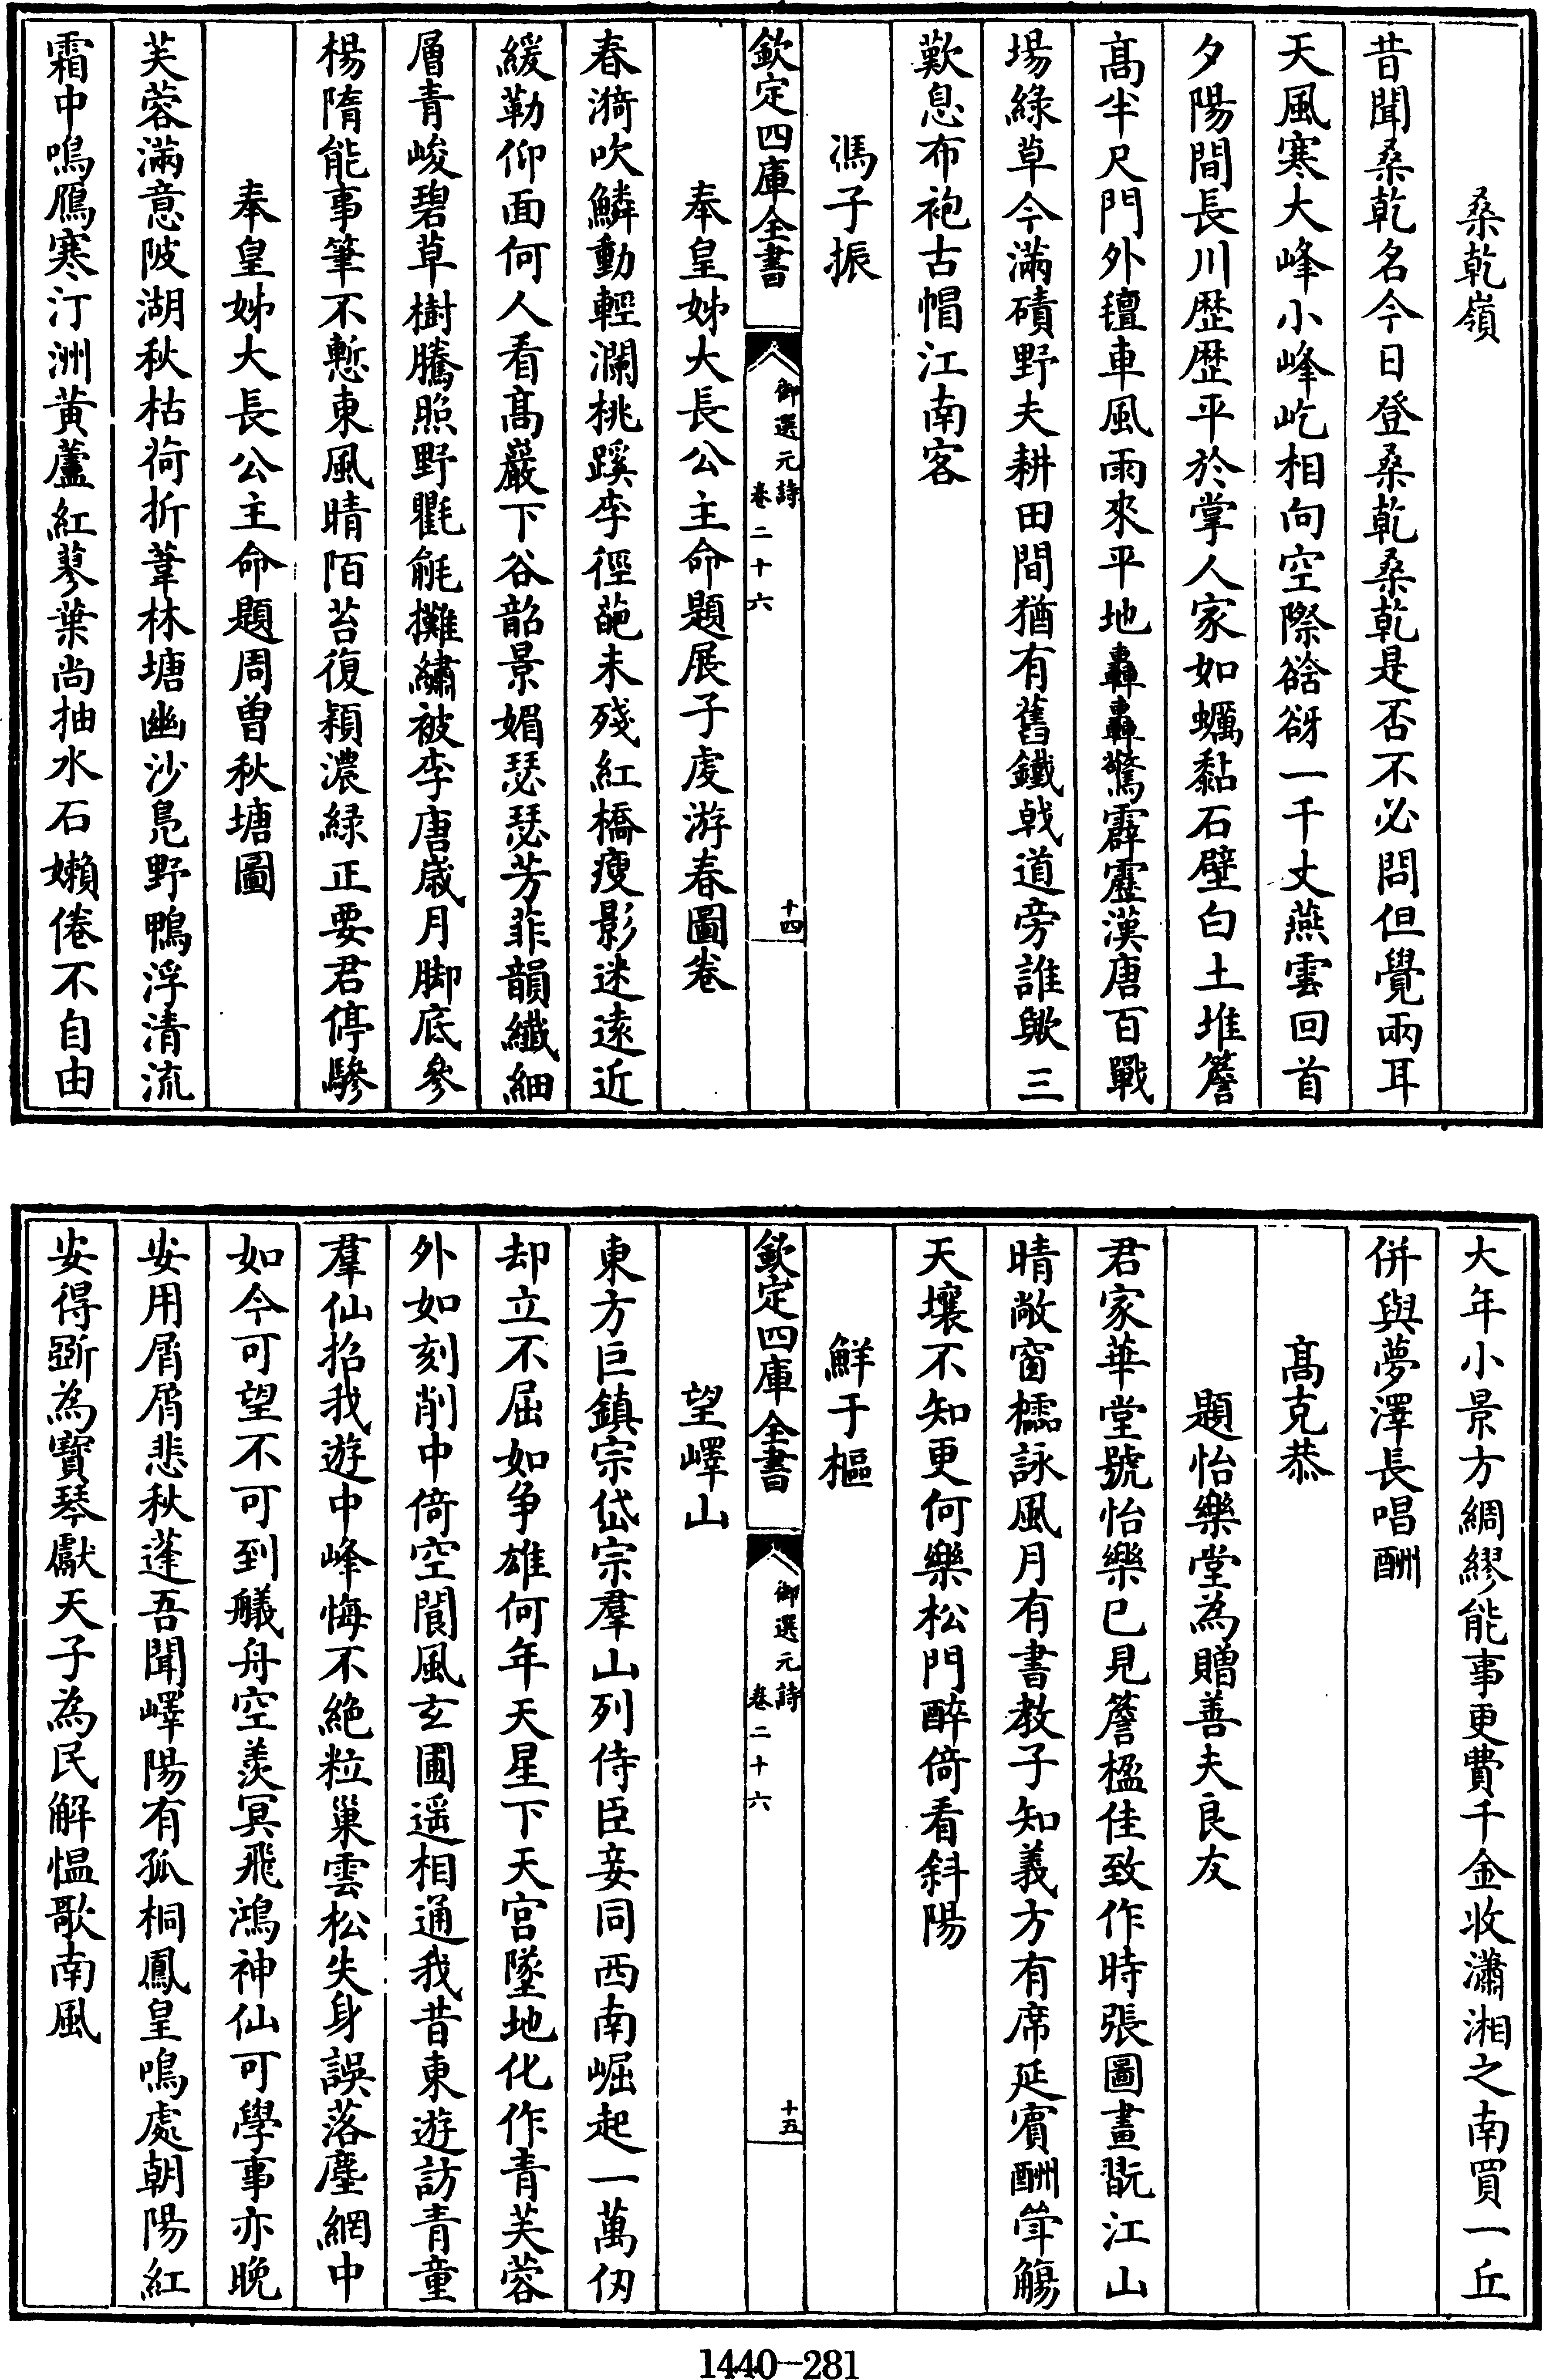 桑乾嶺
昔聞桑乾名今日登桑乾桑乾是否不必問但覺兩耳
天風寒大峰小峰屹相向空際谽谺一千丈燕雲回首
夕陽間長川歴歴平於掌人家如蠣黏石壁白土堆簷
髙半尺門外氊車風雨來平地轟轟驚霹靂漢唐百戰
場綠草今滿磧野夫耕田間猶有舊鐵戟道旁誰歟三
歎息布袍古帽江南客
馮子振
欽定四庫全書
御選元詩
卷二十六
十四
奉皇姊大長公主命題展子虔游春圖卷
春漪吹鱗動輕瀾桃蹊李徑葩未殘紅橋瘦影迷遠近
緩勒仰面何人看髙巖下谷韶景媚瑟瑟芳菲韻纖細
層青峻碧草樹騰照野氍毹攤繡被李唐歳月脚底參
楊隋能事筆不慙東風晴陌苔復穎濃緑正要君停驂
奉皇姊大長公主命題周曽秋塘圖
芙蓉滿意陂湖秋枯荷折葦林塘幽沙鳧野鴨浮清流
霜中鳴鴈寒汀洲黄蘆紅蓼葉尚抽水石嬾倦不自由
大年小景方綢繆能事更費千金收瀟湘之南買一丘
併與夢澤長唱酬
髙克恭
題怡樂堂為贈善夫良友
君家華堂號怡樂已見簷楹佳致作時張圖畫翫江山
晴敞窗櫺詠風月有書教子知義方有席延賓酬觥觴
天壤不知更何樂松門醉倚看斜陽
鮮于樞
欽定四庫全書
御選元詩
卷二十六
十五
望嶧山
東方巨鎮宗岱宗羣山列侍臣妾同西南崛起一萬仞
却立不屈如争雄何年天星下天宫墜地化作青芙蓉
外如刻削中倚空閬風玄圃遥相通我昔東遊訪青童
羣仙招我遊中峰悔不絶粒巢雲松失身誤落塵網中
如今可望不可到艤舟空羨冥飛鴻神仙可學事亦晚
安用屑屑悲秋蓬吾聞嶧陽有孤桐鳳皇鳴處朝陽紅
安得斲為寳琴獻天子為民解愠歌南風
1440—281